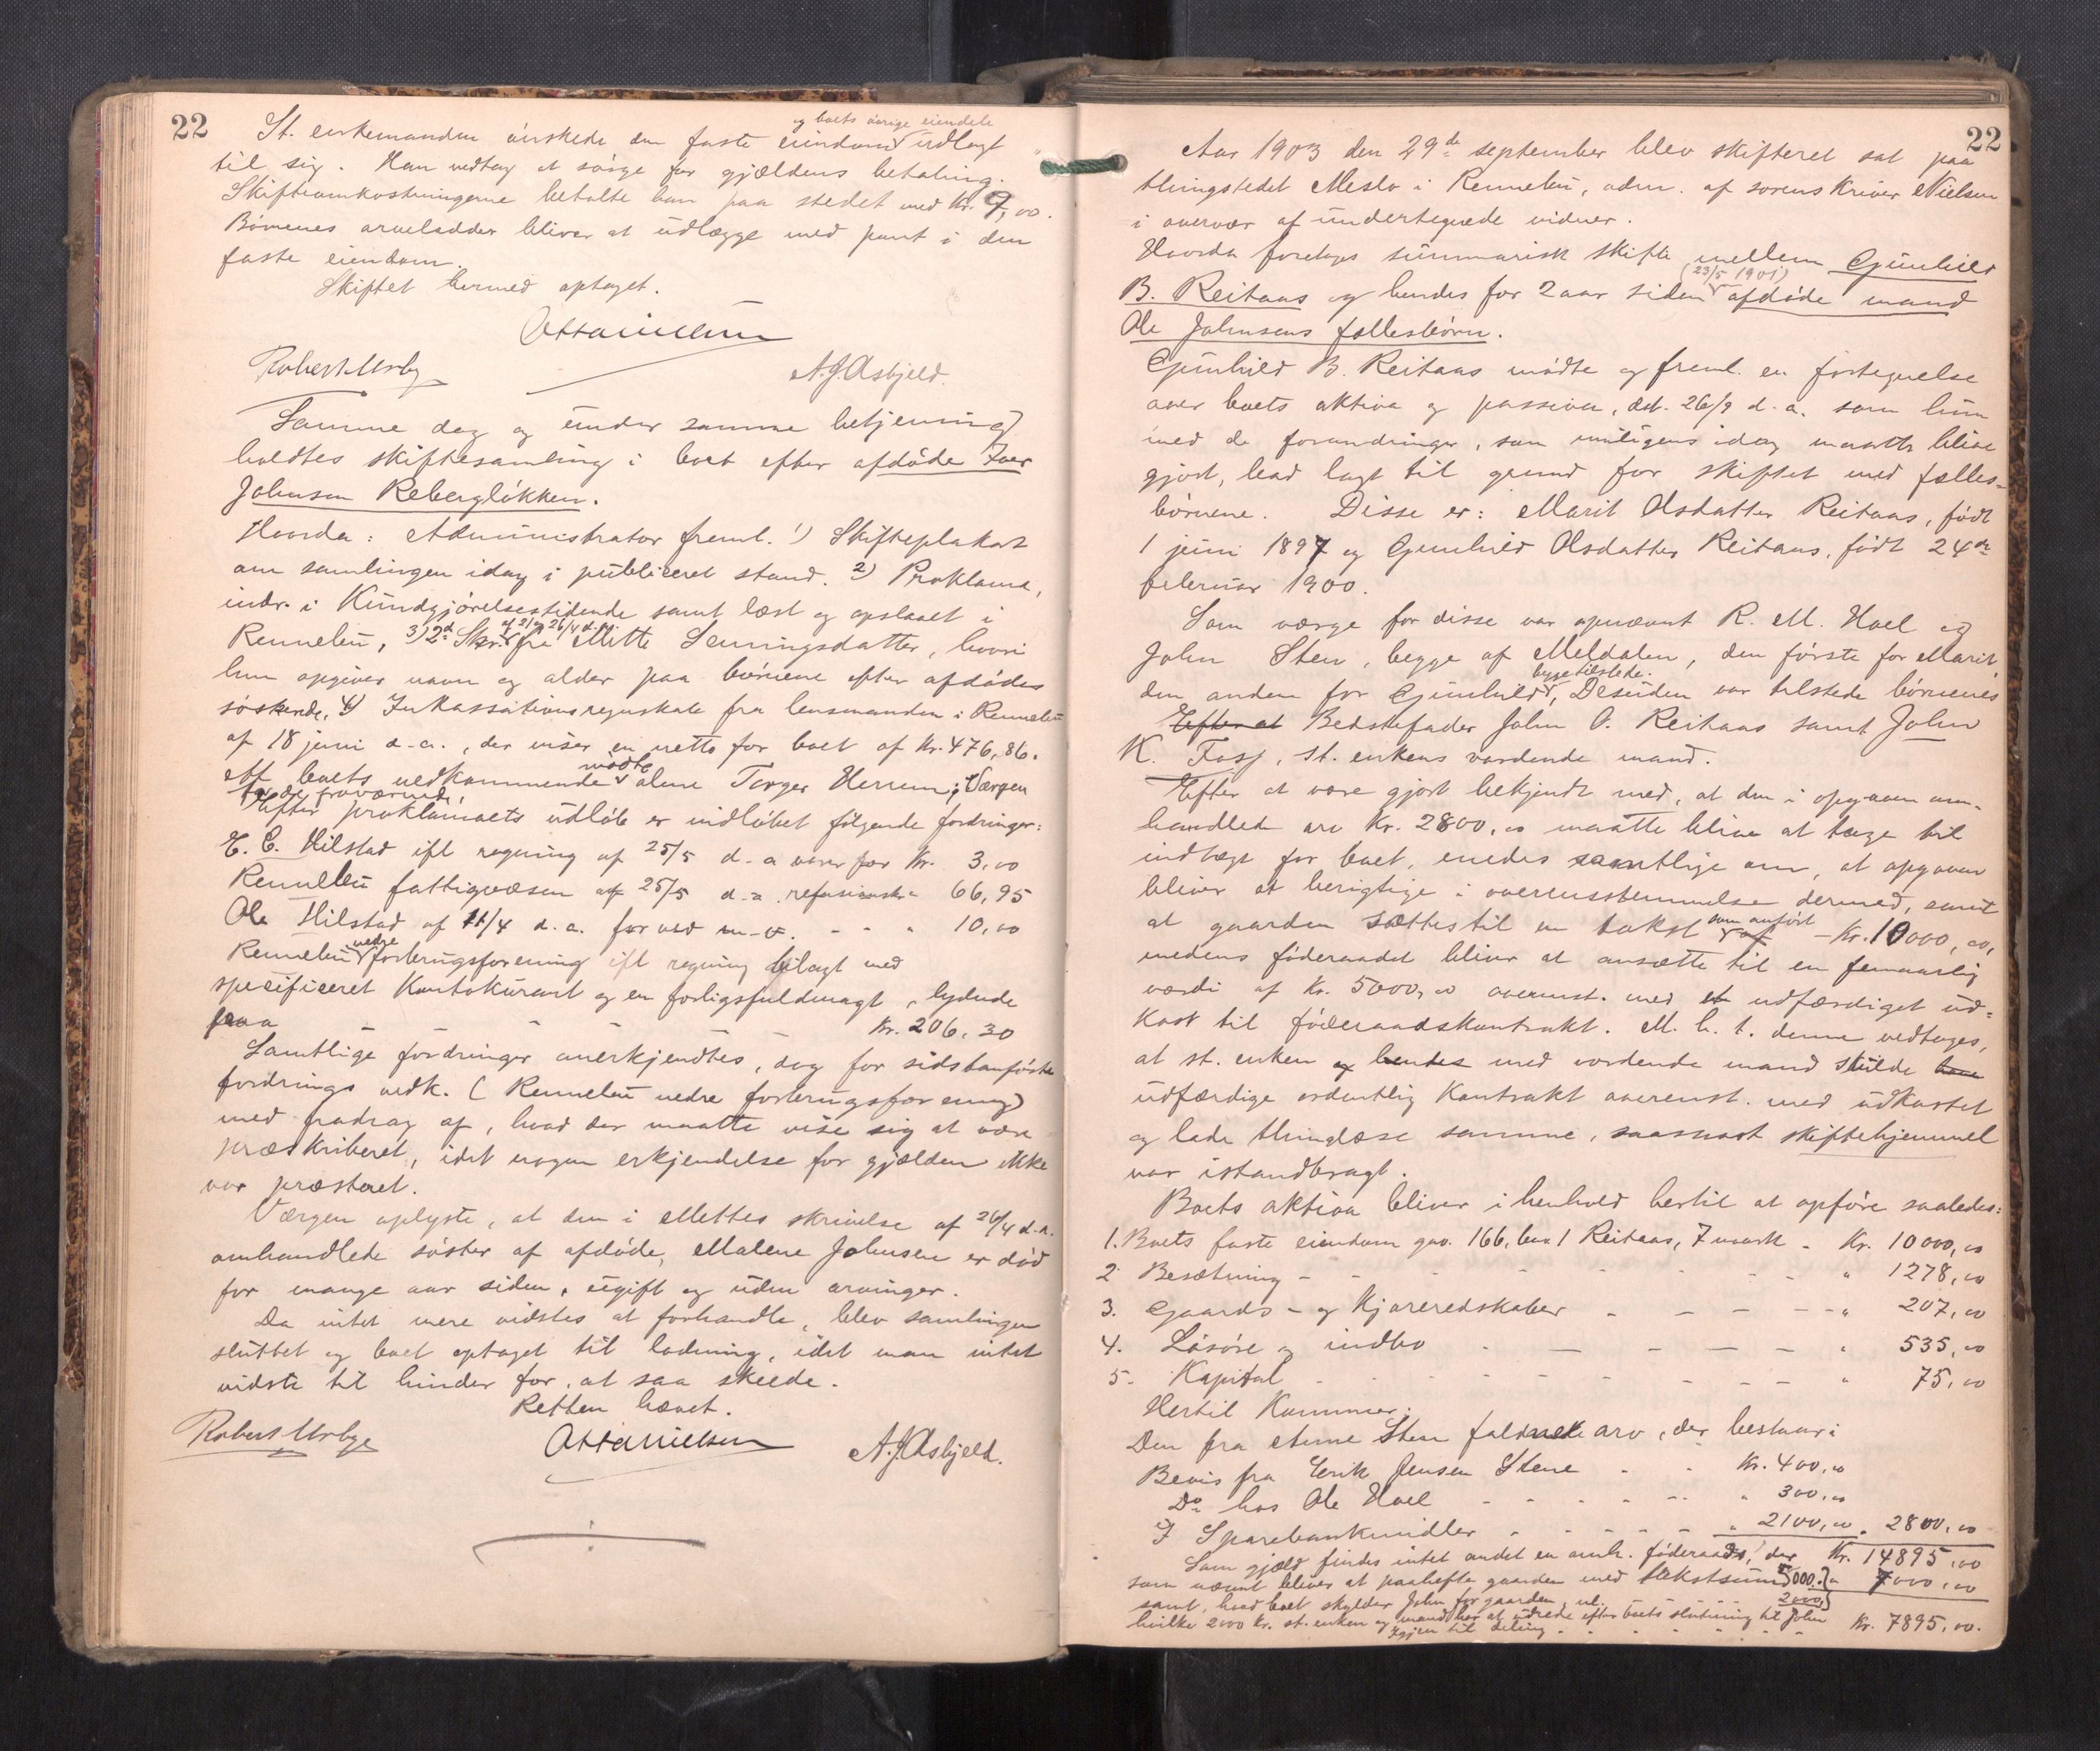 22
og boets övrige eiendele
St. enkemanden önskede den faste eiendom udlagt
til sig. Han vedtog at sörge for gjældens betaling.
Skifteomkostningerne betalte han paa stedet med Kr. 9,00.
Börnenes arvelodder bliver at udlægge med pant i den
faste eiendom.
Skiftet hermed optaget.
Otto Nielsen
Robert Urbye A. J. Asbjeld.
Samme dag og under samme betjening
holdtes skiftesamling i boet efter afdöde Iver
Johnsen Rebergløkken.
Hvorda: Administrator freml. 1) Skifteplakat
om samlingen idag i publiceret stand. 2) Proklama,
indr. i Kundgjörelsestidende samt læst og opslaaet i
af 21 og 26/4 d.a.
Rennebu, 3) 2d Skr. fra Mette Henningsdatter, hvori
hun opgiver navn og alder paa börnene efter afdödes
söskende. 4) Inkassationsregnskab fra lensmanden i Rennebu
af 18 juni d.a., der viser en netto for boet af Kr. 476,86.
mödte
Af boets vedkommende alene Torger Herrem, Værgen
for de fraværende.
Efter proklamaets udlöb er indlöbet fölgende fordringer:
E. E. Hilstad ifl regning af 25/5 d.a varer for Kr. 3,00
Rennebu fattigvæsen af 25/5 d.a. refusionsk. " 66,95
Ole Hilstad af 11/4 d.a. for ved m.v. - - " 10,00
nedre
Rennebu forbrugsforening ifl regning bilagt med
specificeret Kontokurant og en forligsfuldmagt, lydende
paa - - - - Kr. 206,30
Samtlige fordringer anerkjendtes, dog for sidstanförte
fordrings vedk. (Rennebu nedre forbrugsforening)
med fradrag af, hvad der maatte vise sig at være
præskriberet, idet nogen erkjendelse for gjælden ikke
var præsteret.
Værgen oplyste, at den i Mettes skrivelse af 26/4 d.a.
omhandlede söster af afdöde, Malene Johnsen er död
for mange aar siden, ugift og uden arvinger.
Da intet mere vidstes at forhandle, blev samlingen
sluttet og boet optaget til lodning, idet man intet
vidste til hinder for, at saa skeede.
Retten hævet.
Robert Urbye Otto Nielsen A. J. Asbjeld.
22
Aar 1903 den 29de september blev skifteret sat paa
thingstedet Meslo i Rennebu, adm. af sorenskriver Nielsen
i overvær af undertegnede vidner.
Hvorda foretoges summarisk skifte mellem Gunhild
(23/5 1901)
B. Reitaas og hendes for 2 aar siden afdöde mand
Ole Johnsens fællesbörn.
Gunhild B. Reitaas mödte og freml. en fortegnelse
over boets aktiva og passiva, dat. 26/9 d.a. som hun
med de forandringer, som muligens idag maatte blive
gjort, bad lagt til grund for skiftet med fælles-
börnene. Disse er: Marit Olsdatter Reitaas, födt
1 juni 1897 og Gunhild Olsdatter Reitaas, födt 24de
februar 1900.
Som værge for disse var opnævnt R. M. Hoel og
John Sten, begge af Meldalen, den förste for Marit
begge tilstede.
den anden for Gunhild, Desuden var tilstede börnenes
Efter at Bedstefader John O. Reitaas samt John
K. Fosj, st. enkens vordende mand.
Efter at være gjort bekjendt med, at den i opgaven om-
handlede arv Kr. 2800,00 maatte blive at tage til
indtægt for boet, enedes samtlige om, at opgaven
bliver at berigtige i overensstemmelse dermed, samt
som anfört
at gaarden sættes til en takst af - Kr. 10000,00,
medens föderaadet bliver at ansætte til en femaarlig
værdi af Kr. 5000,00 overenst. med et udfærdiget ud-
kast til föderaadskontrakt. M. h. t. denne vedtoges,
at st. enken og hendes med vordende mand skulde have
udfærdige ordentlig Kontrakt overenst. med udkastet
og lade thinglæse samme, saasnart skiftehjemmel
var istandbragt.
Boets aktiva bliver i henhold hertil at opföre saaledes:
1. Boets faste eiendom gno. 166, bno. 1 Reitaas, 7 mark - Kr. 10000,00
2 Besætning - - - - - - " 1278,00
3. Gaards- og Kjøreredskaber - - - - " 207,00
4. Lösöre og indbo - - - - - " 535,00
5. Kapital - - - - - - " 75,00
Hertil Kommer:
Den fra Arne Sten faldne arv, der bestaar i
Bevis fra Erik Jensen Stene - - Kr. 400,00
Do hos Ole Hoel - - - - " 300,00
I Sparebankmidler - - - - " 2100,00 " 2800,00
Som gjæld findes intet andet en omh. föderaad, der Kr. 14895,00
som nævnt bliver at paahefte gaarden med takstsum 5000.) " 7000,00
samt, hvad boet skylder John for gaarden, nl. - - - 2000)
hvilke 2000 Kr. st. enken og mand har at udrede efter boets slutning til John
Igjen til deling - - - - - - Kr. 7895,00.